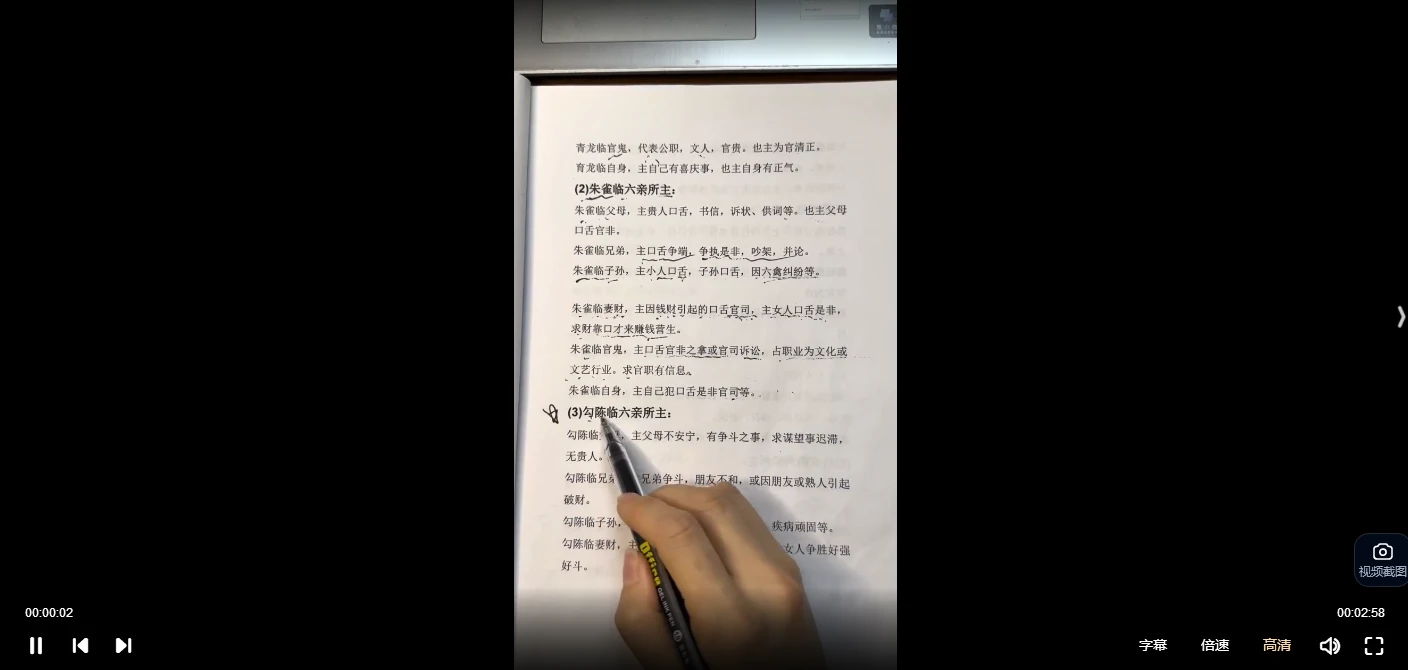 青龙临官鬼，代表公职，文人，官贵。也主为官清正。
青龙临自身，主自己有喜庆事，也主自身有正气。
(2)朱雀临六亲所主：
朱雀临父母，主贵人口舌，书信，诉状、供词等。也主父母
口舌官非。
朱雀临兄弟，主口舌争端，争执是非，吵架，并论。
朱雀临子孙，主小人口舌，子孙口舌，因六禽纠纷等。
朱雀临妻财，主因钱财引起的口舌官司，主女人口舌是非，
求财靠口才来赚钱营生。
朱雀临官鬼，主口舌官非之拿或官司诉讼，占职业为文化或
文艺行业。求官职有信息。
朱雀临自身，主自己犯口舌是非官司等。
(3)勾陈临六亲所主：
勾陈临 ，主父母不安宁，有争斗之事，求谋望事迟滞，
无贵人。
勾陈临兄弟 兄弟争斗，朋友不和，或因朋友或熟人引起
破财。
勾陈临子孙， 疾病顽固等。
勾陈临妻财，主 女人争胜好强
好斗。
Office
GEL INK PEN
视频截图
00:00:02
00:02:58
字幕
倍速
高清